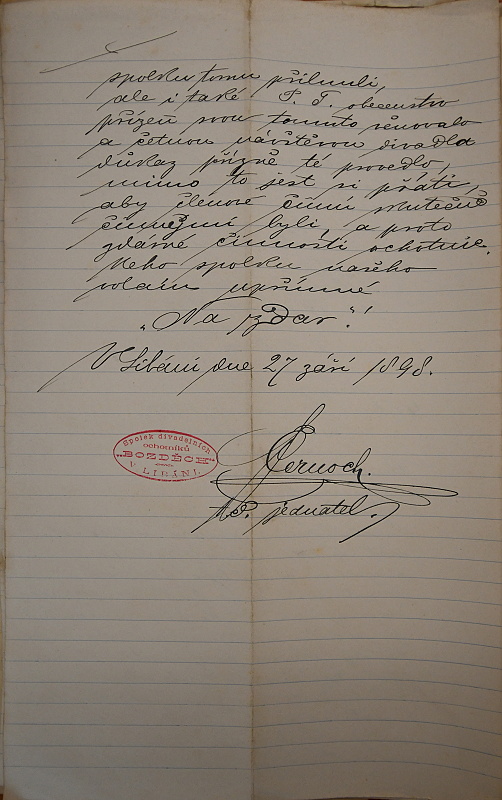 spolku tomu přilnuli,
ale i také P. T. obecenstvo
přízeň svou tomuto věnovalo
a četnou návštěvou divadla
důkaz přízně té provedlo,
mimo to jest si přáti,
aby členové činní skutečně
činnými byli, a proto
zdárné činnosti ochotnic.
kého spolku našeho
volám upřímné
„Na zdar"!
V Libáni dne 27 září 1898.
Spolek divadelních
ochotníků
„BOZDĚCH"
V LIBÁNI.
Černoch.
jednatel.